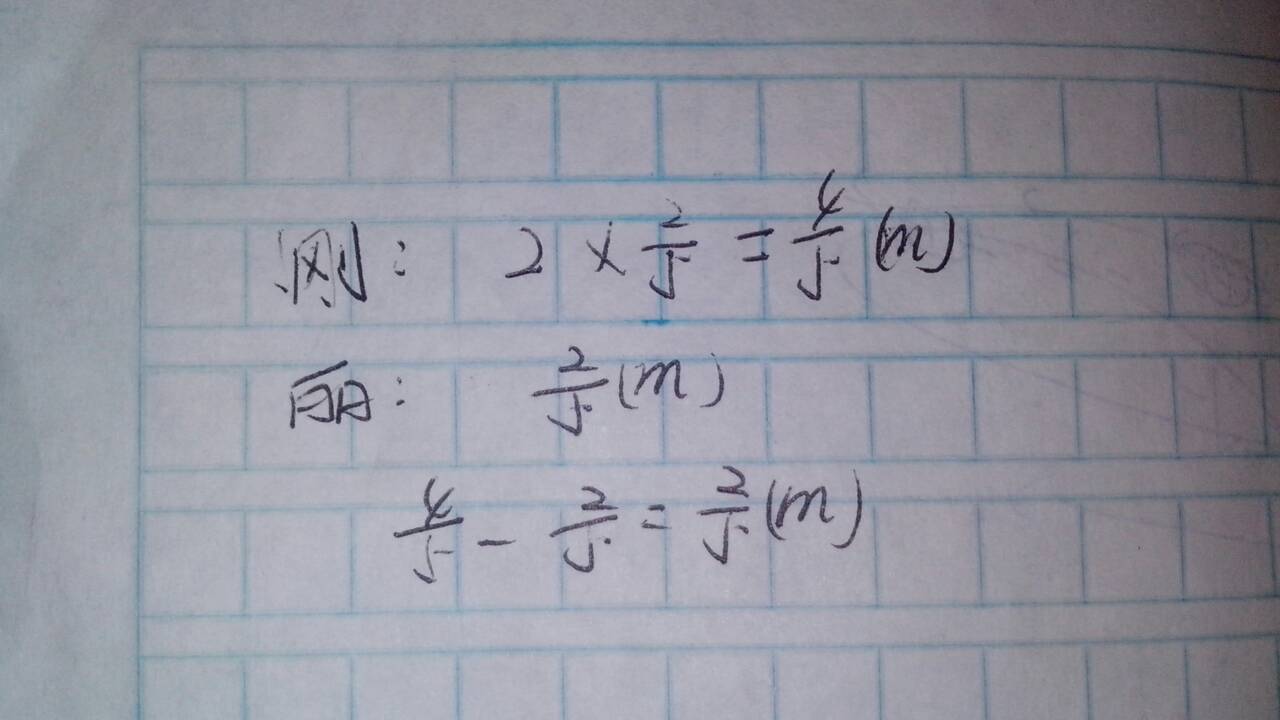 刚： 2 × 2/5 = 4/5 (m)
丽： 2/5 (m)
4/5 - 2/5 = 2/5 (m)